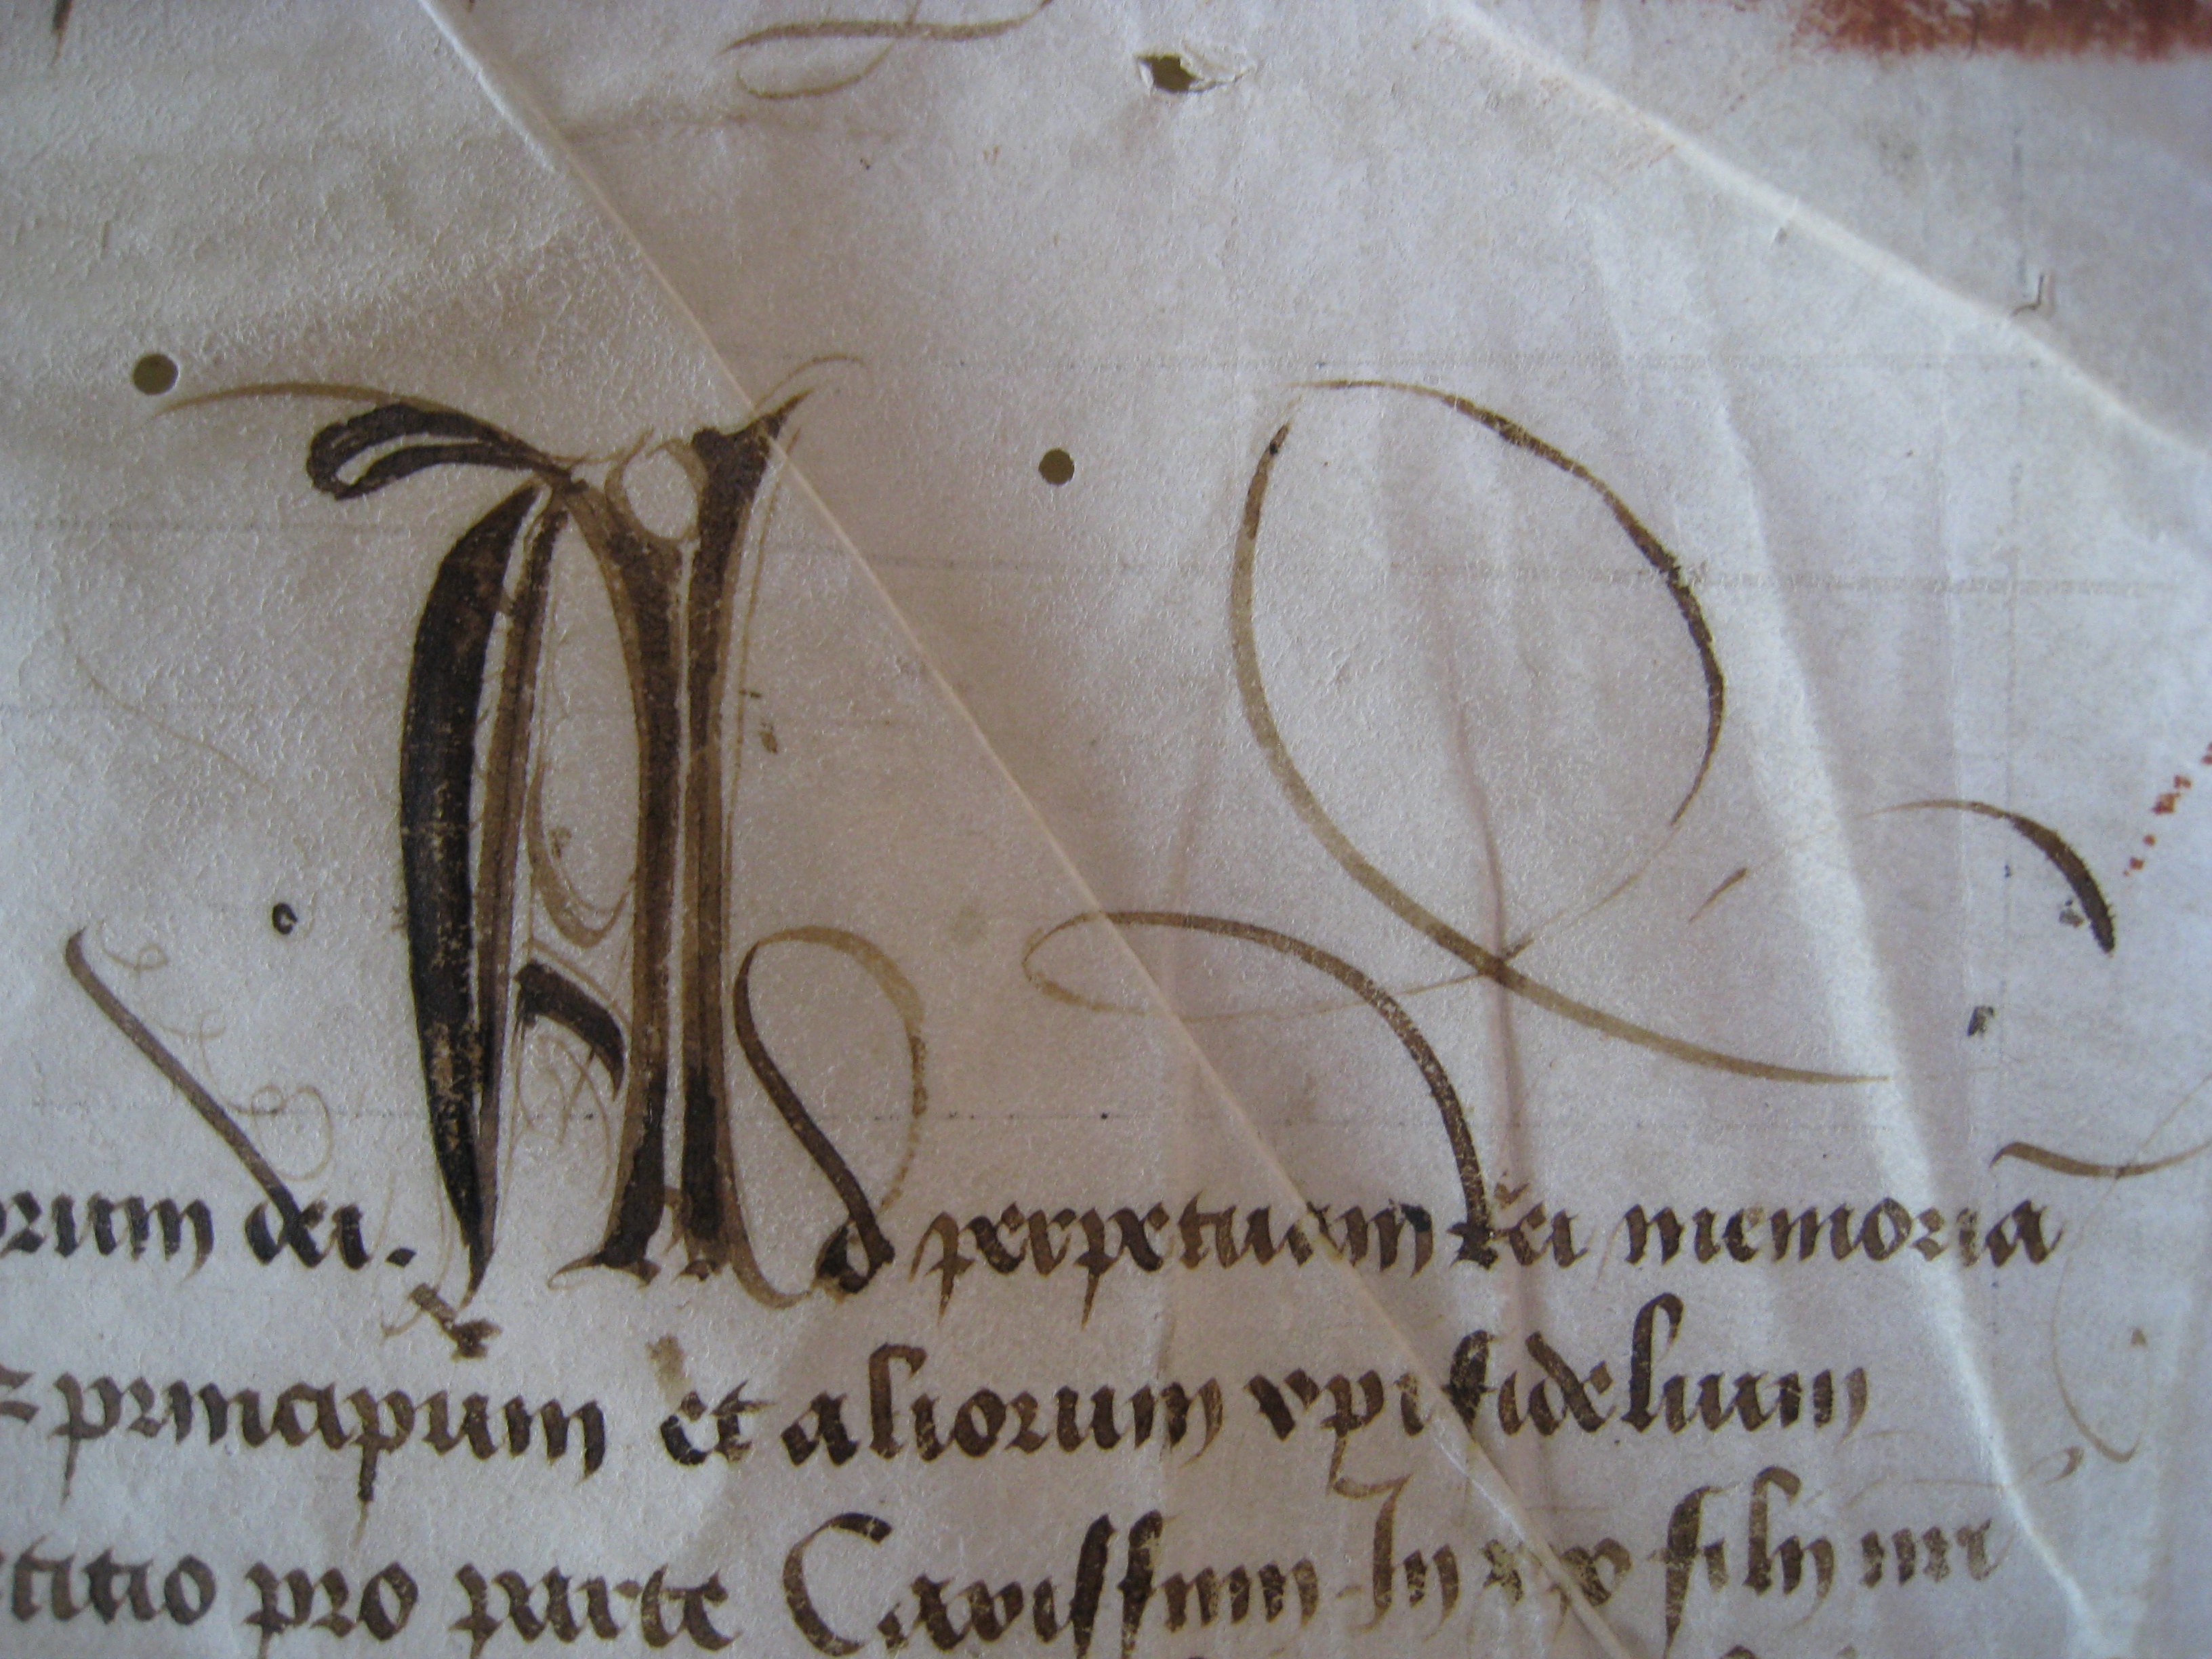 orum dei. Ad perpetuam rei memoriā
principum et aliorum xpi fidelium
titio pro parte Carissimi in xpo filij nri